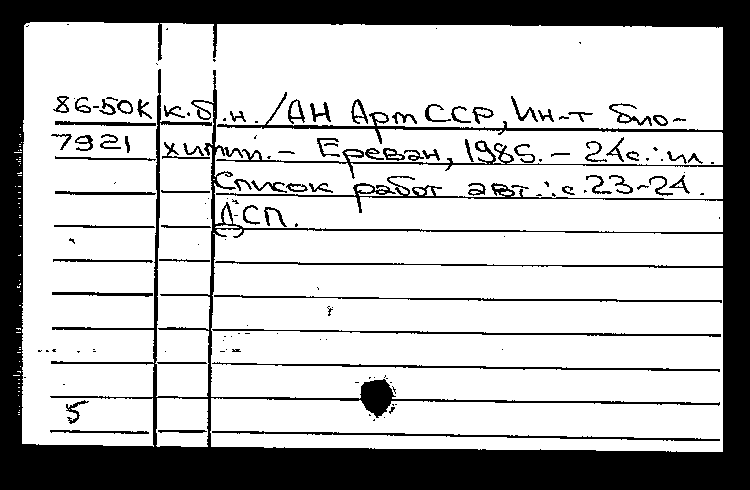 86-50К к.б.н./АН АрмССР, Ин-т био-
7921 химии. – Ереван, 1985. – 24с.:ил.
Список работ авт.: с.23-24.
ДСП.
5